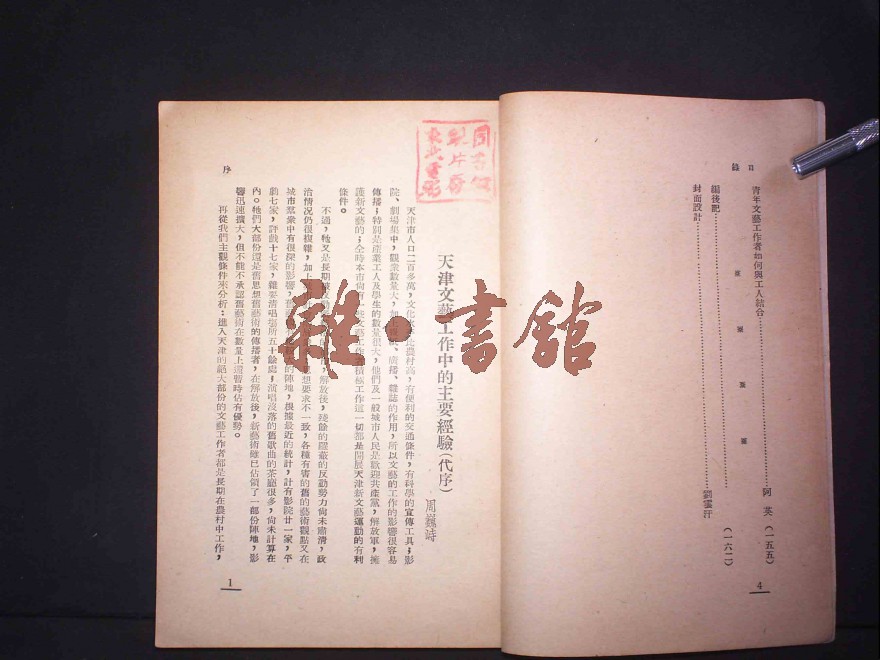 目錄
青年文艺工作者如何與工人結合……阿英（一五五）
編後記……（一六二）
封面設計……劉雲汀
4
圖書館
製片廠
東北電影
天津文藝工作中的主要經驗（代序）
周巍峙
天津市人口二百多萬，文化水平比農村高，有便利的交通條件，有科學的宣傳工具；影
院、劇場集中，觀衆數量大，加上報紙、廣播、雜誌的作用，所以文藝的工作的影響很容易
傳播；特別是產業工人及學生的數量很大，他們及一般城市人民是歡迎共產黨，解放軍，擁
護新文藝的；全時本市尚有一些文藝工作者積極工作這一切都是開展天津新文藝運動的有利
條件。
不過，牠又是長期被反動
解放後，殘餘的隱蔽的反動勢力尚未肅清，政
治情况仍很複雜，加上
思想要求不一致，各種有害的舊的藝術觀點又在
城市羣衆中有很深的影響，舊藝
的陣地，根據最近的統計，計有影院廿一家，平
劇七家，評戲十七家，雜耍清唱場所五十餘處；演唱沒落的舊歌曲的茶廳很多，尙未計算在
內。牠們大部份還是舊思想舊藝術的傳播者，在解放後，新藝術雖已佔領了一部份陣地，影
響迅速擴大，但不能不承認舊藝術在數量上還暫時佔有優勢。
再從我們主觀條件來分析：進入天津的絕大部份的文藝工作者都是長期在農村中工作，
序
1
雜·書館